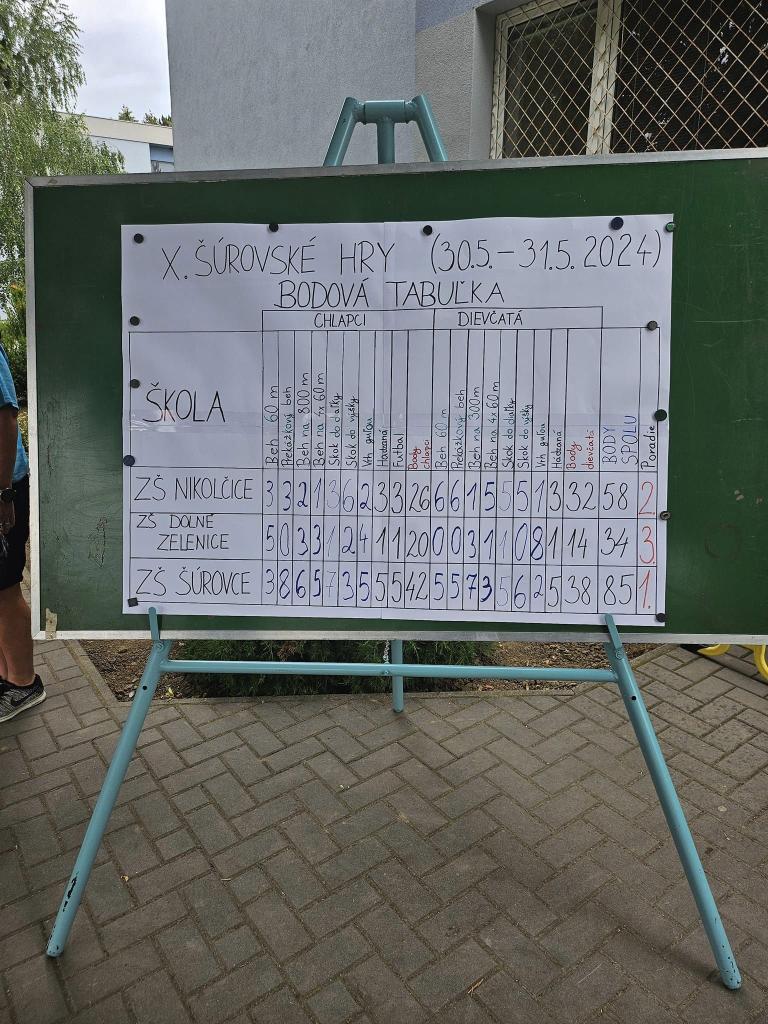 X. ŠÚROVSKÉ HRY (30.5. – 31.5. 2024)
BODOVÁ TABUĽKA
CHLAPCI DIEVČATÁ
ŠKOLA Beh 60 m Prekážkový beh Beh na 800 m Beh na 4x60 m Skok do diaľky Skok do výšky Vrh guľou Hádzaná Futbal Body chlapci Beh 60 m Prekážkový beh Beh na 300 m Beh na 4x60 m Skok do diaľky Skok do výšky Vrh guľou Hádzaná Body dievčatá BODY SPOLU Poradie
ZŠ NIKOLČICE 3 3 2 1 3 6 2 3 3 26 6 6 1 5 5 5 1 3 32 58 2.
ZŠ DOLNÉ ZELENICE 5 0 3 3 1 2 4 1 1 20 0 0 3 1 1 0 8 1 14 34 3.
ZŠ ŠÚROVCE 3 8 6 5 7 3 5 5 5 42 5 5 7 3 5 6 2 5 38 85 1.